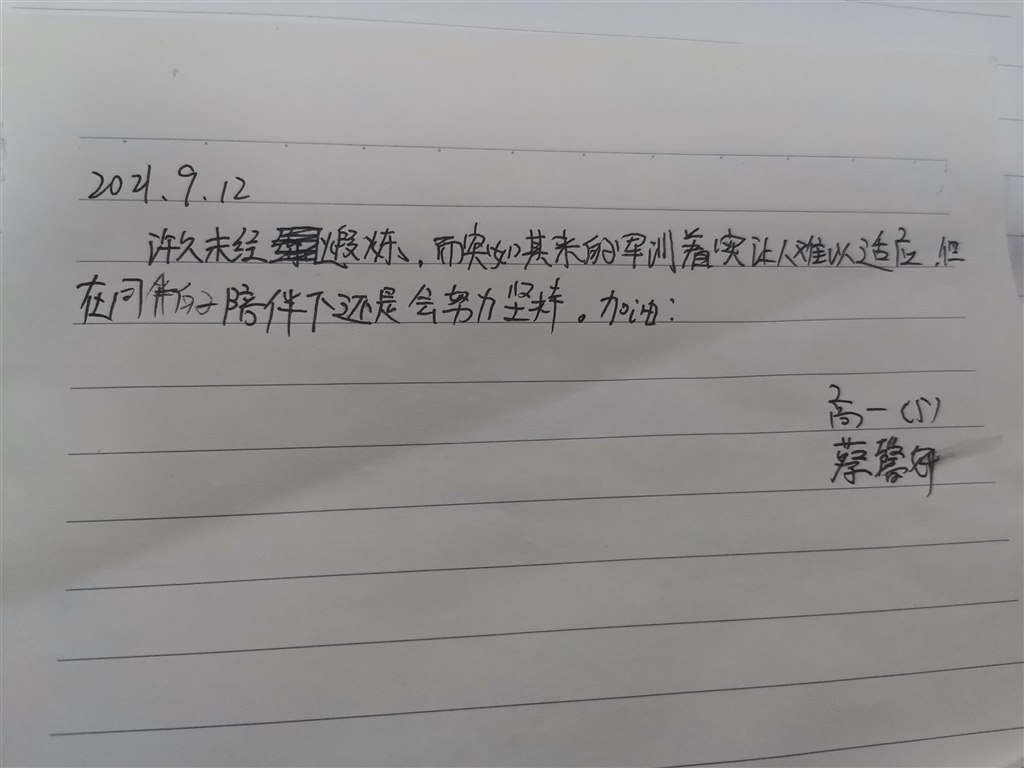 2021.9.12
许久未经煅炼,而突如其来的军训着实让人难以适应,但
在同伴的陪伴下还是会努力坚持。加油:
高一(5)
蔡馨妍